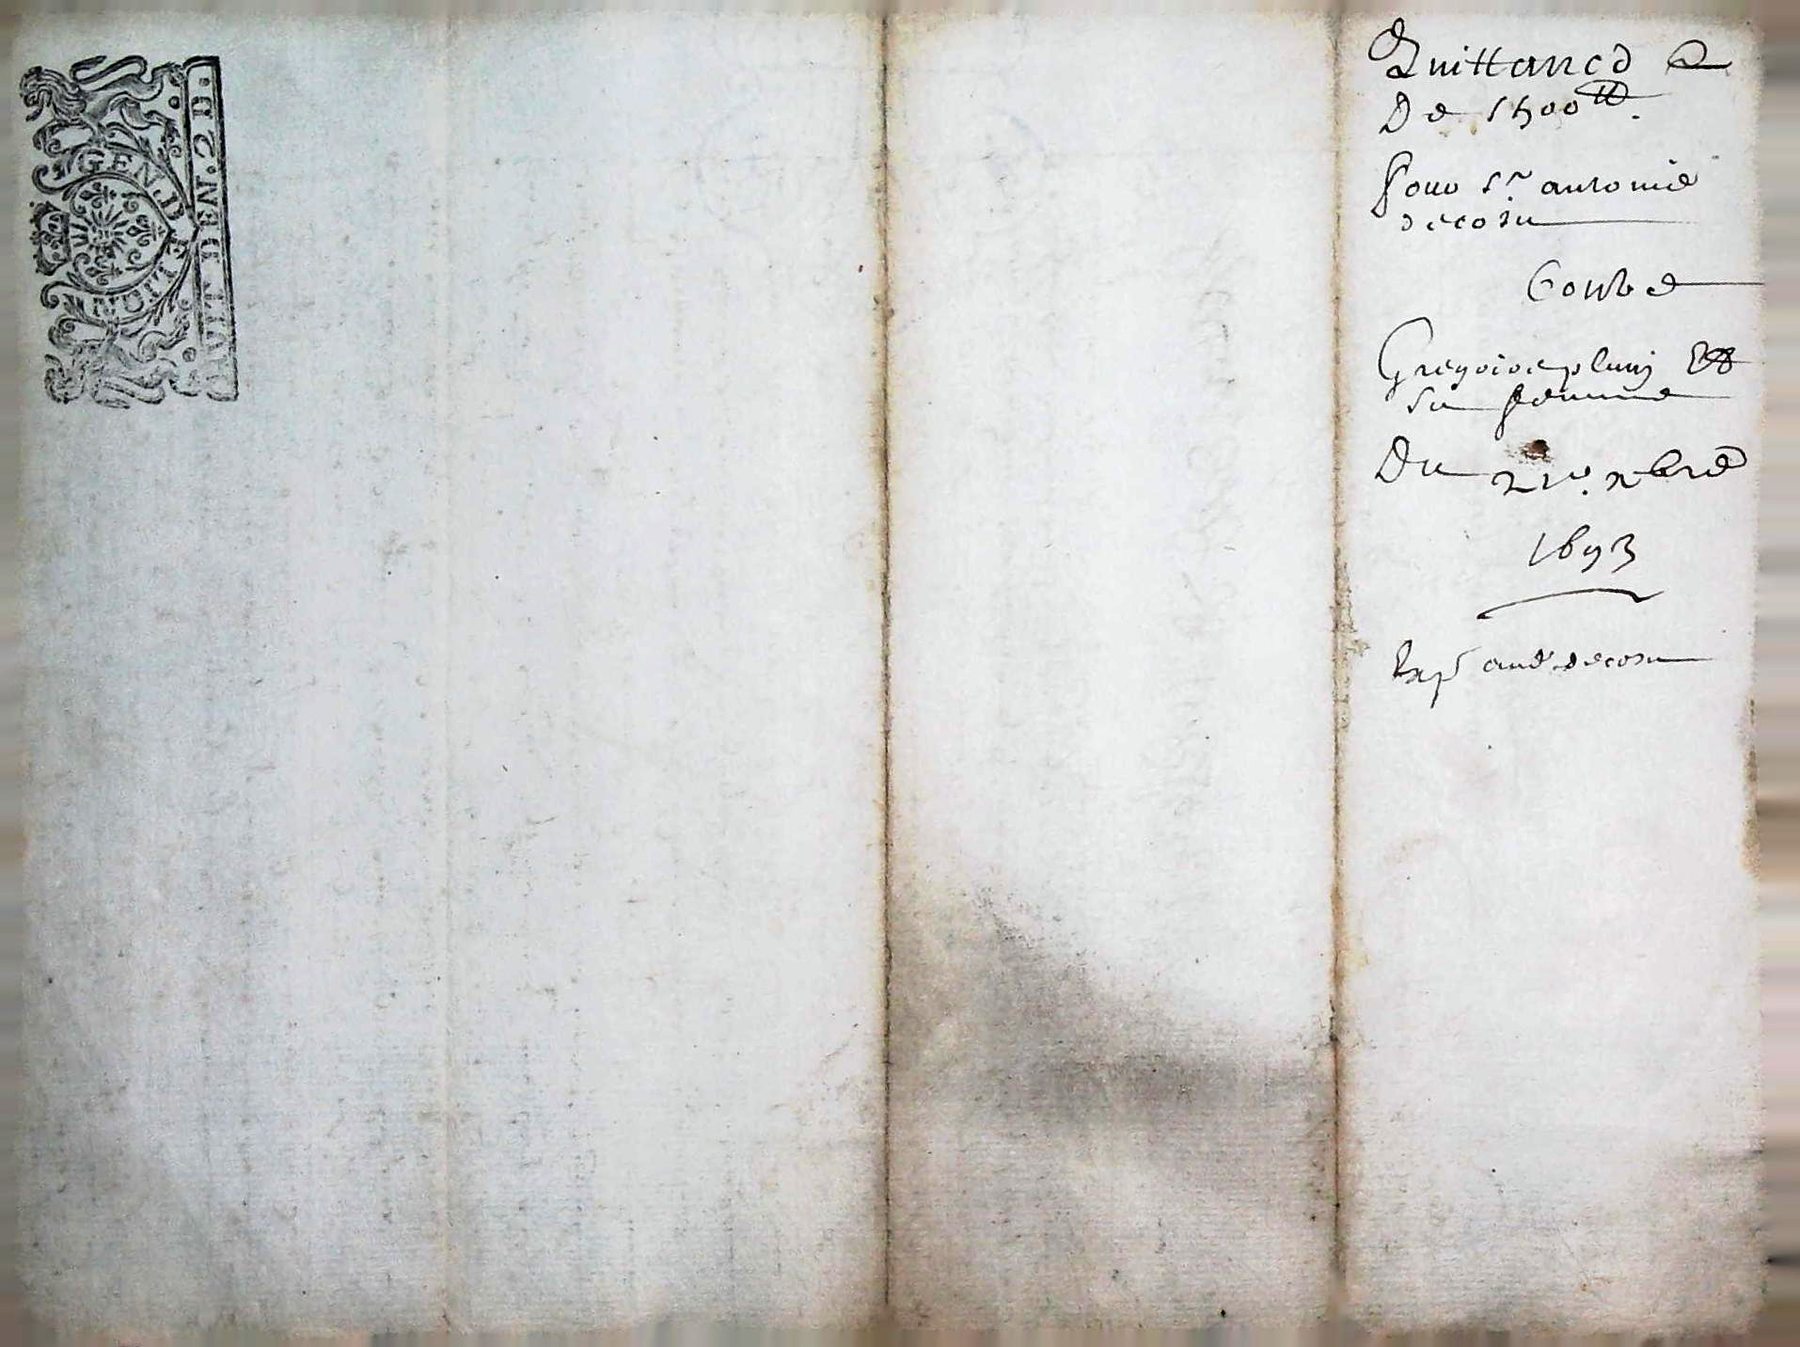 GEN. D
HUIT DEN. 2 D.
Quittance
De 1500ᵗᵗ.
pour sʳ. antoine
decoru
Contre
Gregoire plunj Et
sa femme
Du 21ᵉ. xbre
1693
Exp audᵗ decoru